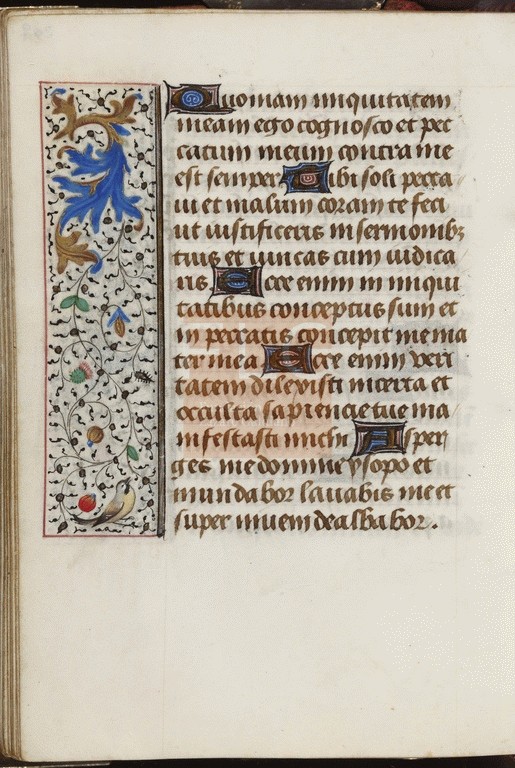 Quoniam iniquitatem
meam ego cognosco et pec
catum meum contra me
est semper Tibi soli pecca
ui et malum coram te feci
ut iustificeris in sermonibꝫ
tuis et uincas cum iudica
ris Ecce enim in iniqui
tatibus conceptus sum et
in peccatis concepit me ma
ter mea Ecce enim veri
tatem dilexisti incerta et
occulta sapiencie tue ma
nifestasti michi Asper
ges me domine ysopo et
mundabor lauabis me et
super niuem dealbabor.